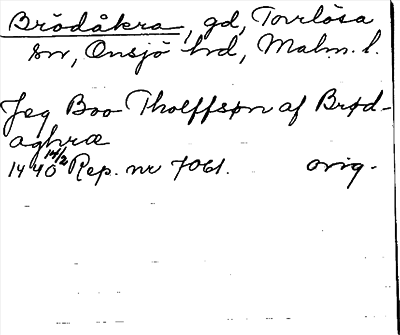 Brödåkra, gd, Torrlösa
sn, Onsjö hd, Malm. l.
Jeg Boo Tholffsøn af Brød-
aghræ
1440 14/2 Rep. nr 7061. orig.